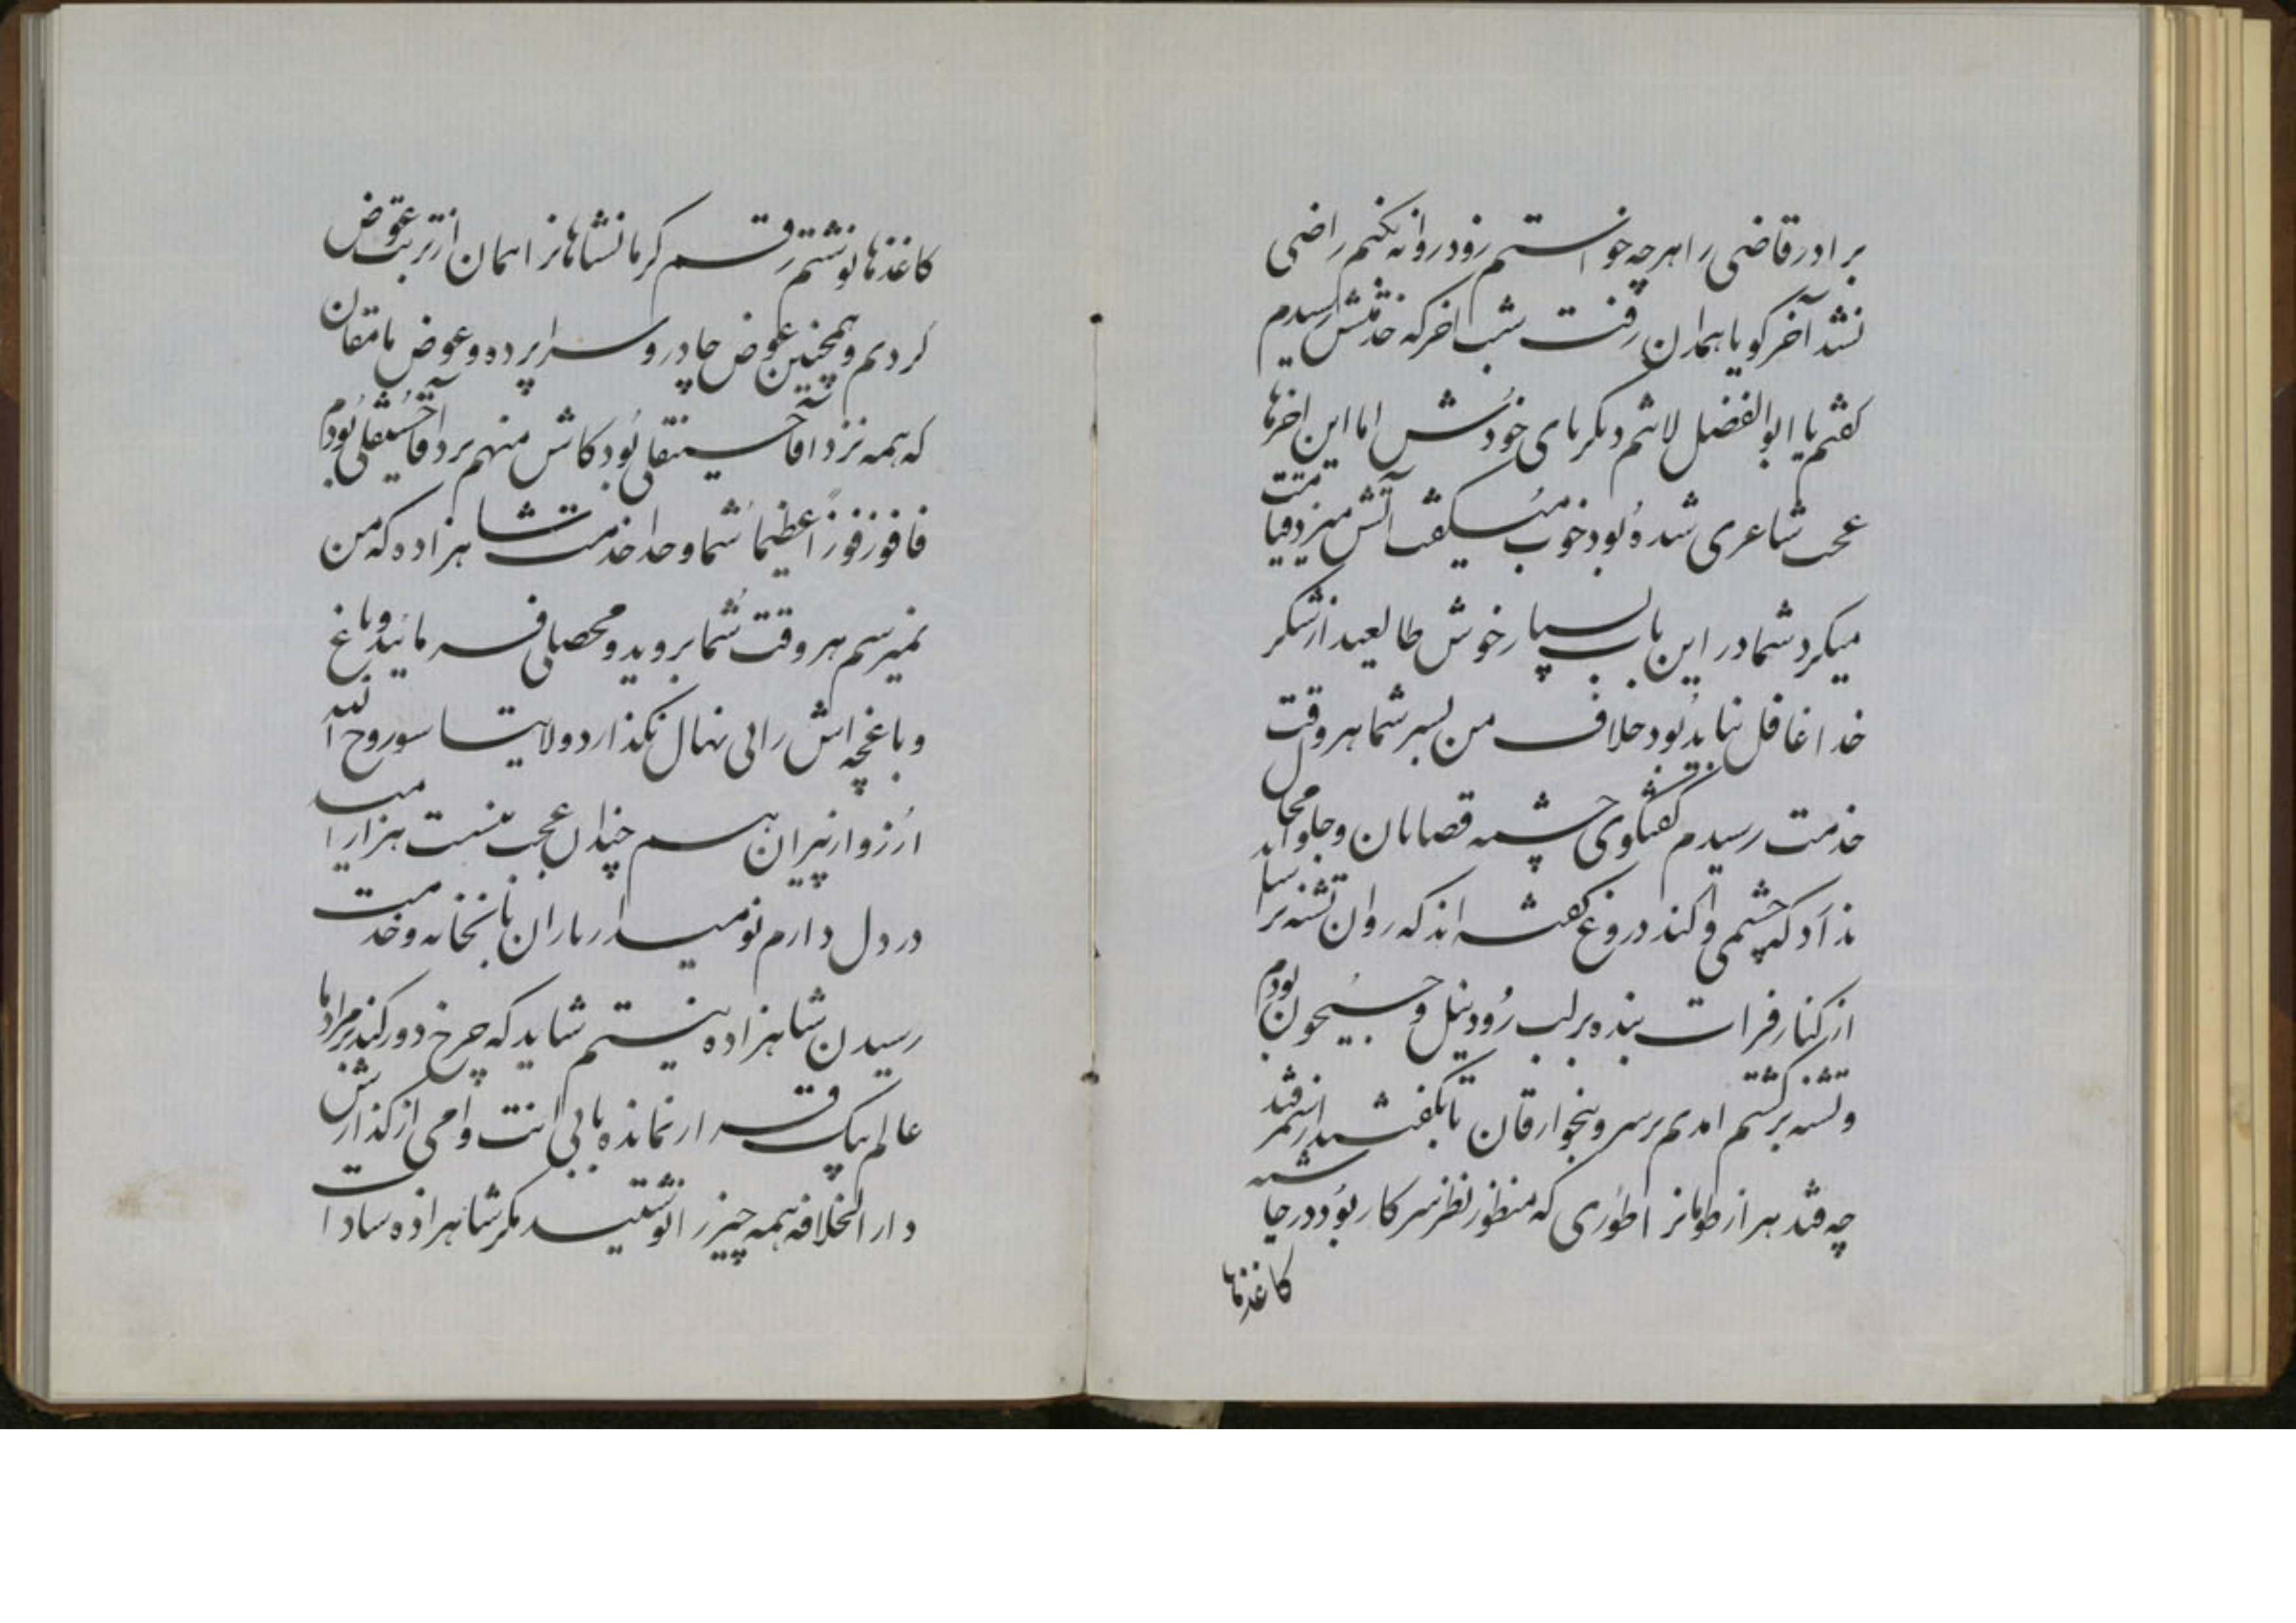 برادر قاضی را هر چه خواستم زود روانه نکنم راضی
نشد آخر گویا همدان رفت شب آخر که خدمتش رسیدم
گفتم یا ابوالفضل لاشم دگر پای خودش اما این آخرها
عجب شاعری شده بود خوب میگفت آتش میزد قیامت
میکرد شما در این باب بسیار خوش طالعید از شکر
خدا غافل نباید بود خلاف من بسر شما هر وقت
خدمت رسیدم گفتگوی چشمه قصابان و جاو محال
نداد که چشمی واکند دروغ گفته اند که روان تشنه
از کنار فرات بنده بر لب رود نیل و جیحون بودم
و تشنه برگشتم امدم بر سر و بنجوارقان تا بگفتید از سمرقند
چه قند هر از طومانرا طوری که منظور نظر سرکار بود در حاشیه
کاغذها
کاغذها نوشتم رقم کرمانشاهانرا همان از تربت عوض
کردیم و همچنین عوض چادر و سراپرده و عوض مامقان
که همه نزد آقا حسینقلی بود کاش منهم نزد آقا حسینقلی بودم
فافوز فوزاً عظیما شما و خدا خدمت شاهزاده که من
نمیرسم هر وقت شما بروید و محصلی فرمائید و باغ
و باغچه اش را بی نهال نگذارد ولا تیاسو روح الله
آرزو از پیران هم چندان عجب نیست هزار امید
در دل دارم نومید ار یاران نانجخانه و خدمت
رسیدن شاهزاده نیستم شاید که چرخ دور کند بر مراد ما
عالم بیک قرار نمانده بابی انت و امی از گذارش
دار الخلافه همه چیز را نوشتید مگر شاهزاده سادات